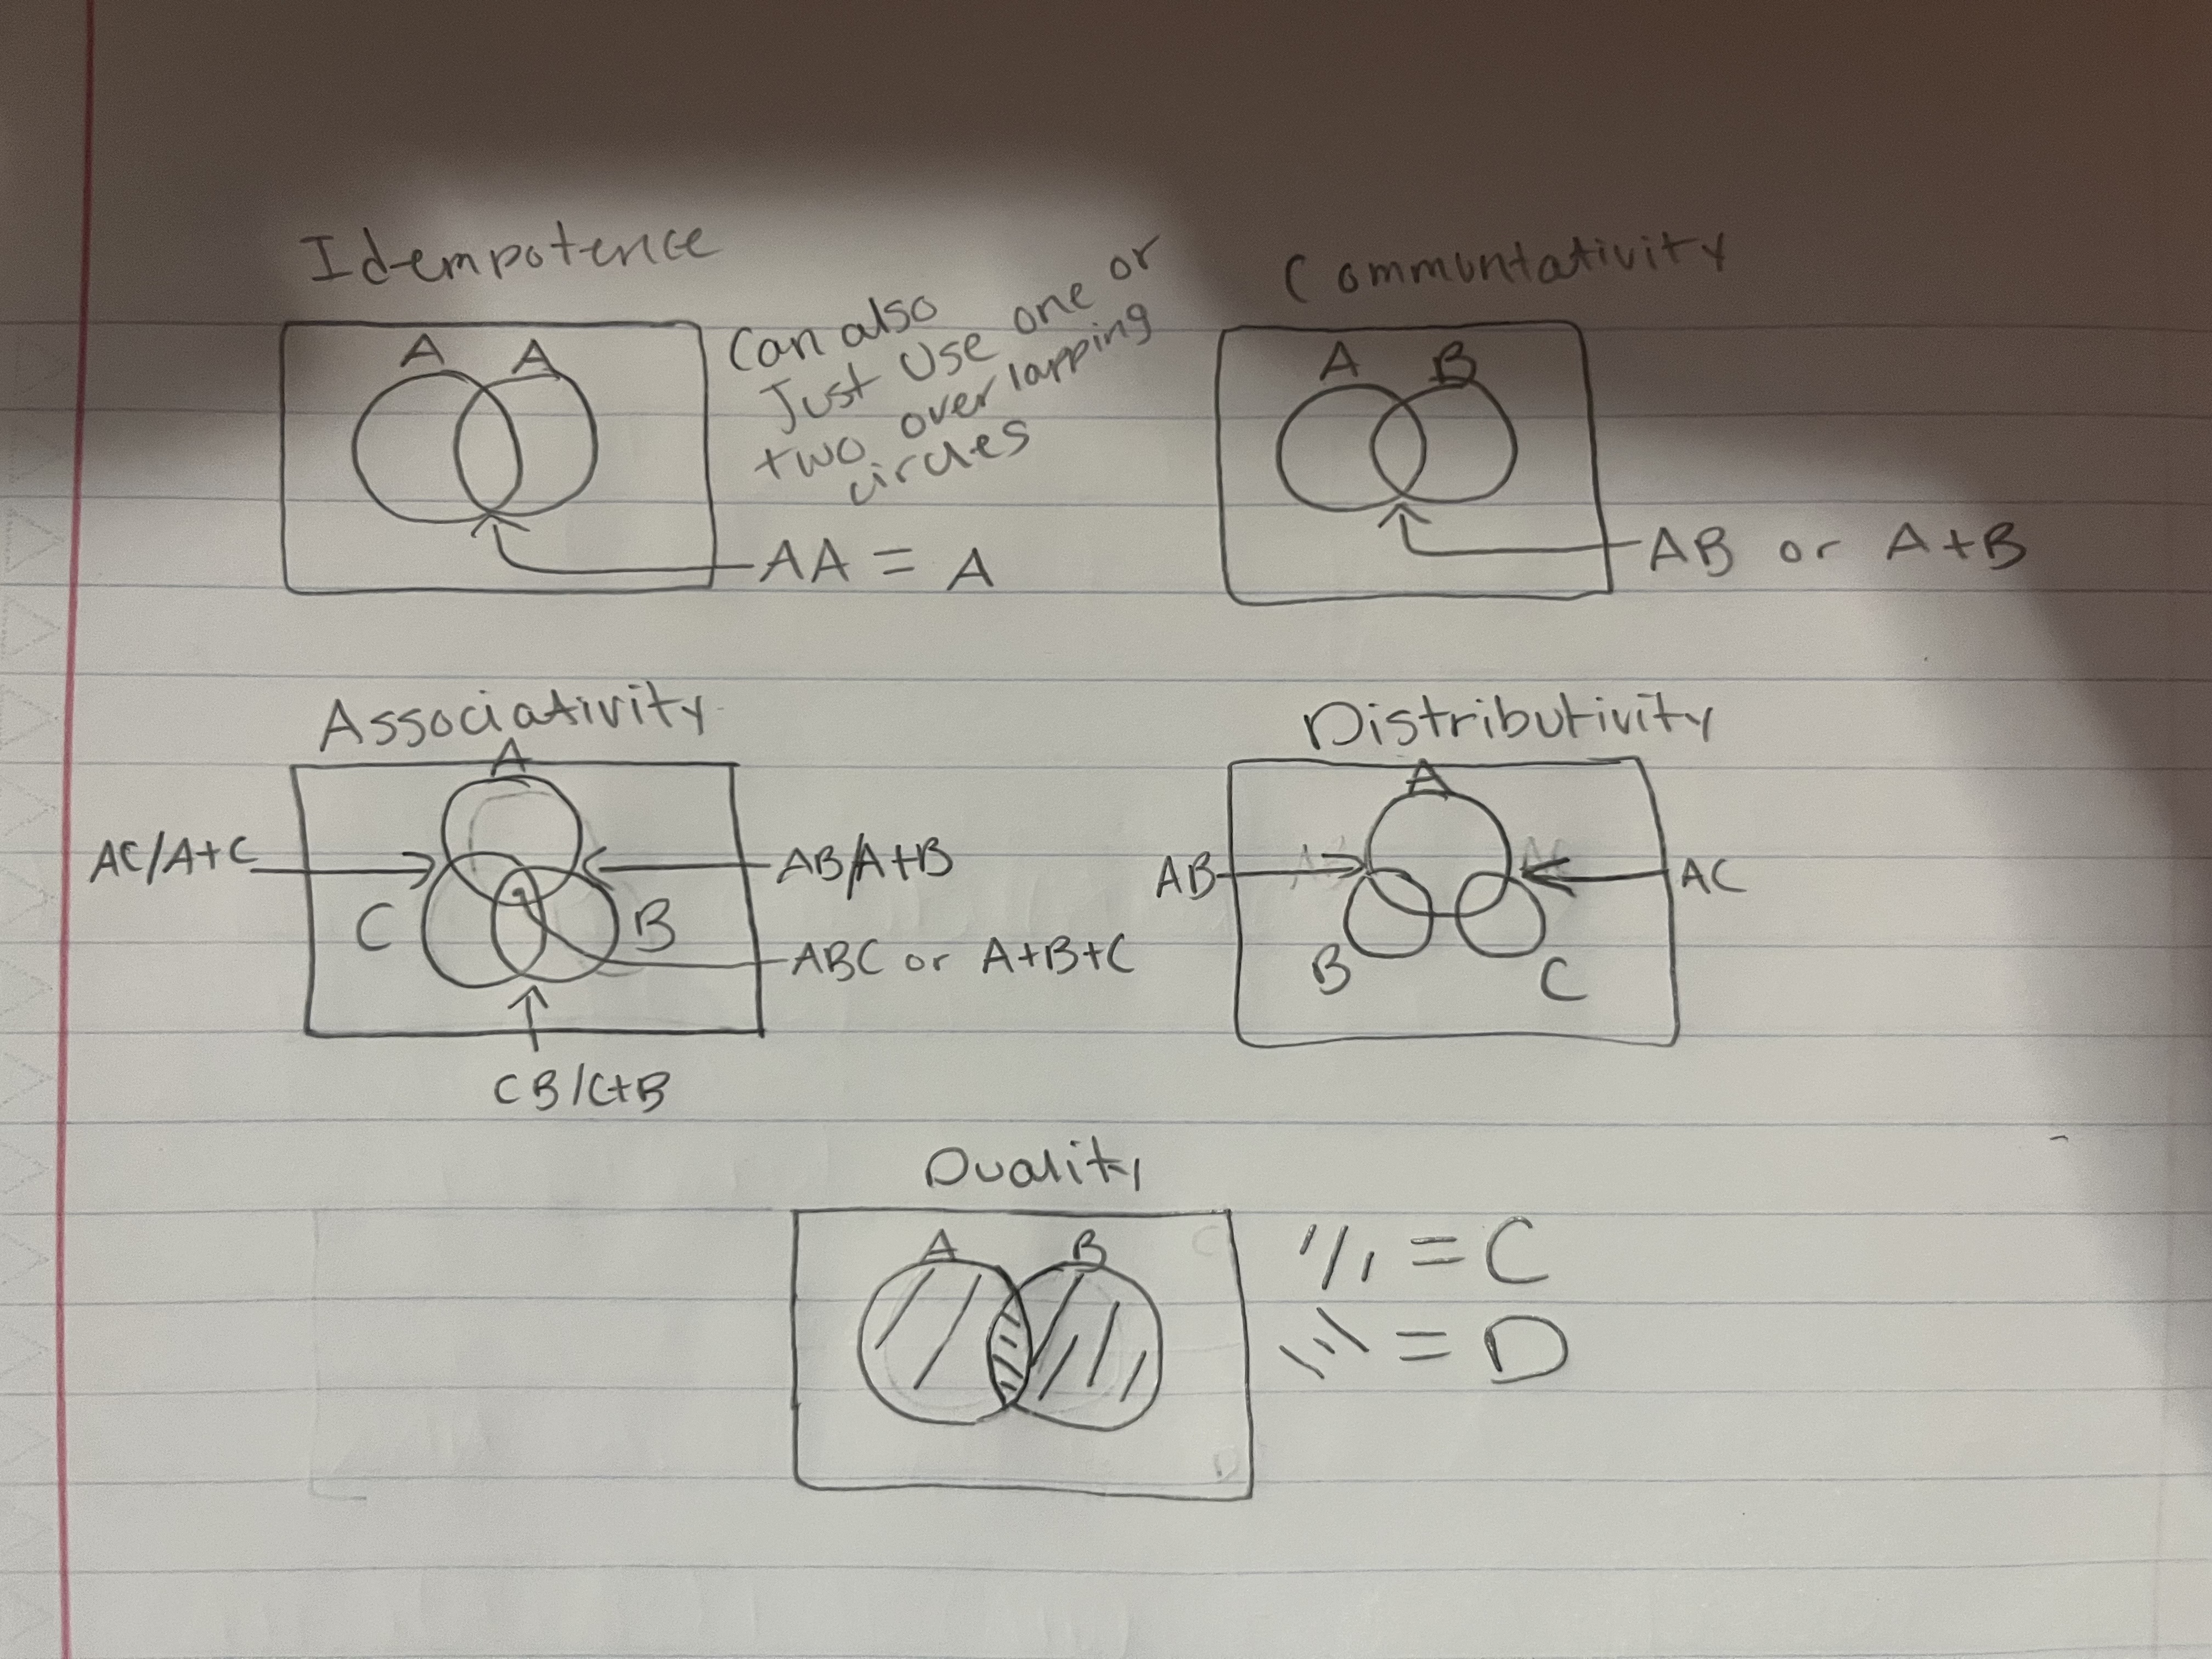 Idempotence
A A
Can also
Just Use one or
two overlapping
circles
AA = A
Communtativity
A B
AB or A+B
Associativity
A
AC/A+C
AB/A+B
C B
ABC or A+B+C
CB/C+B
Distributivity
A
AB
AC
B
C
Duality
A B
= C
= D